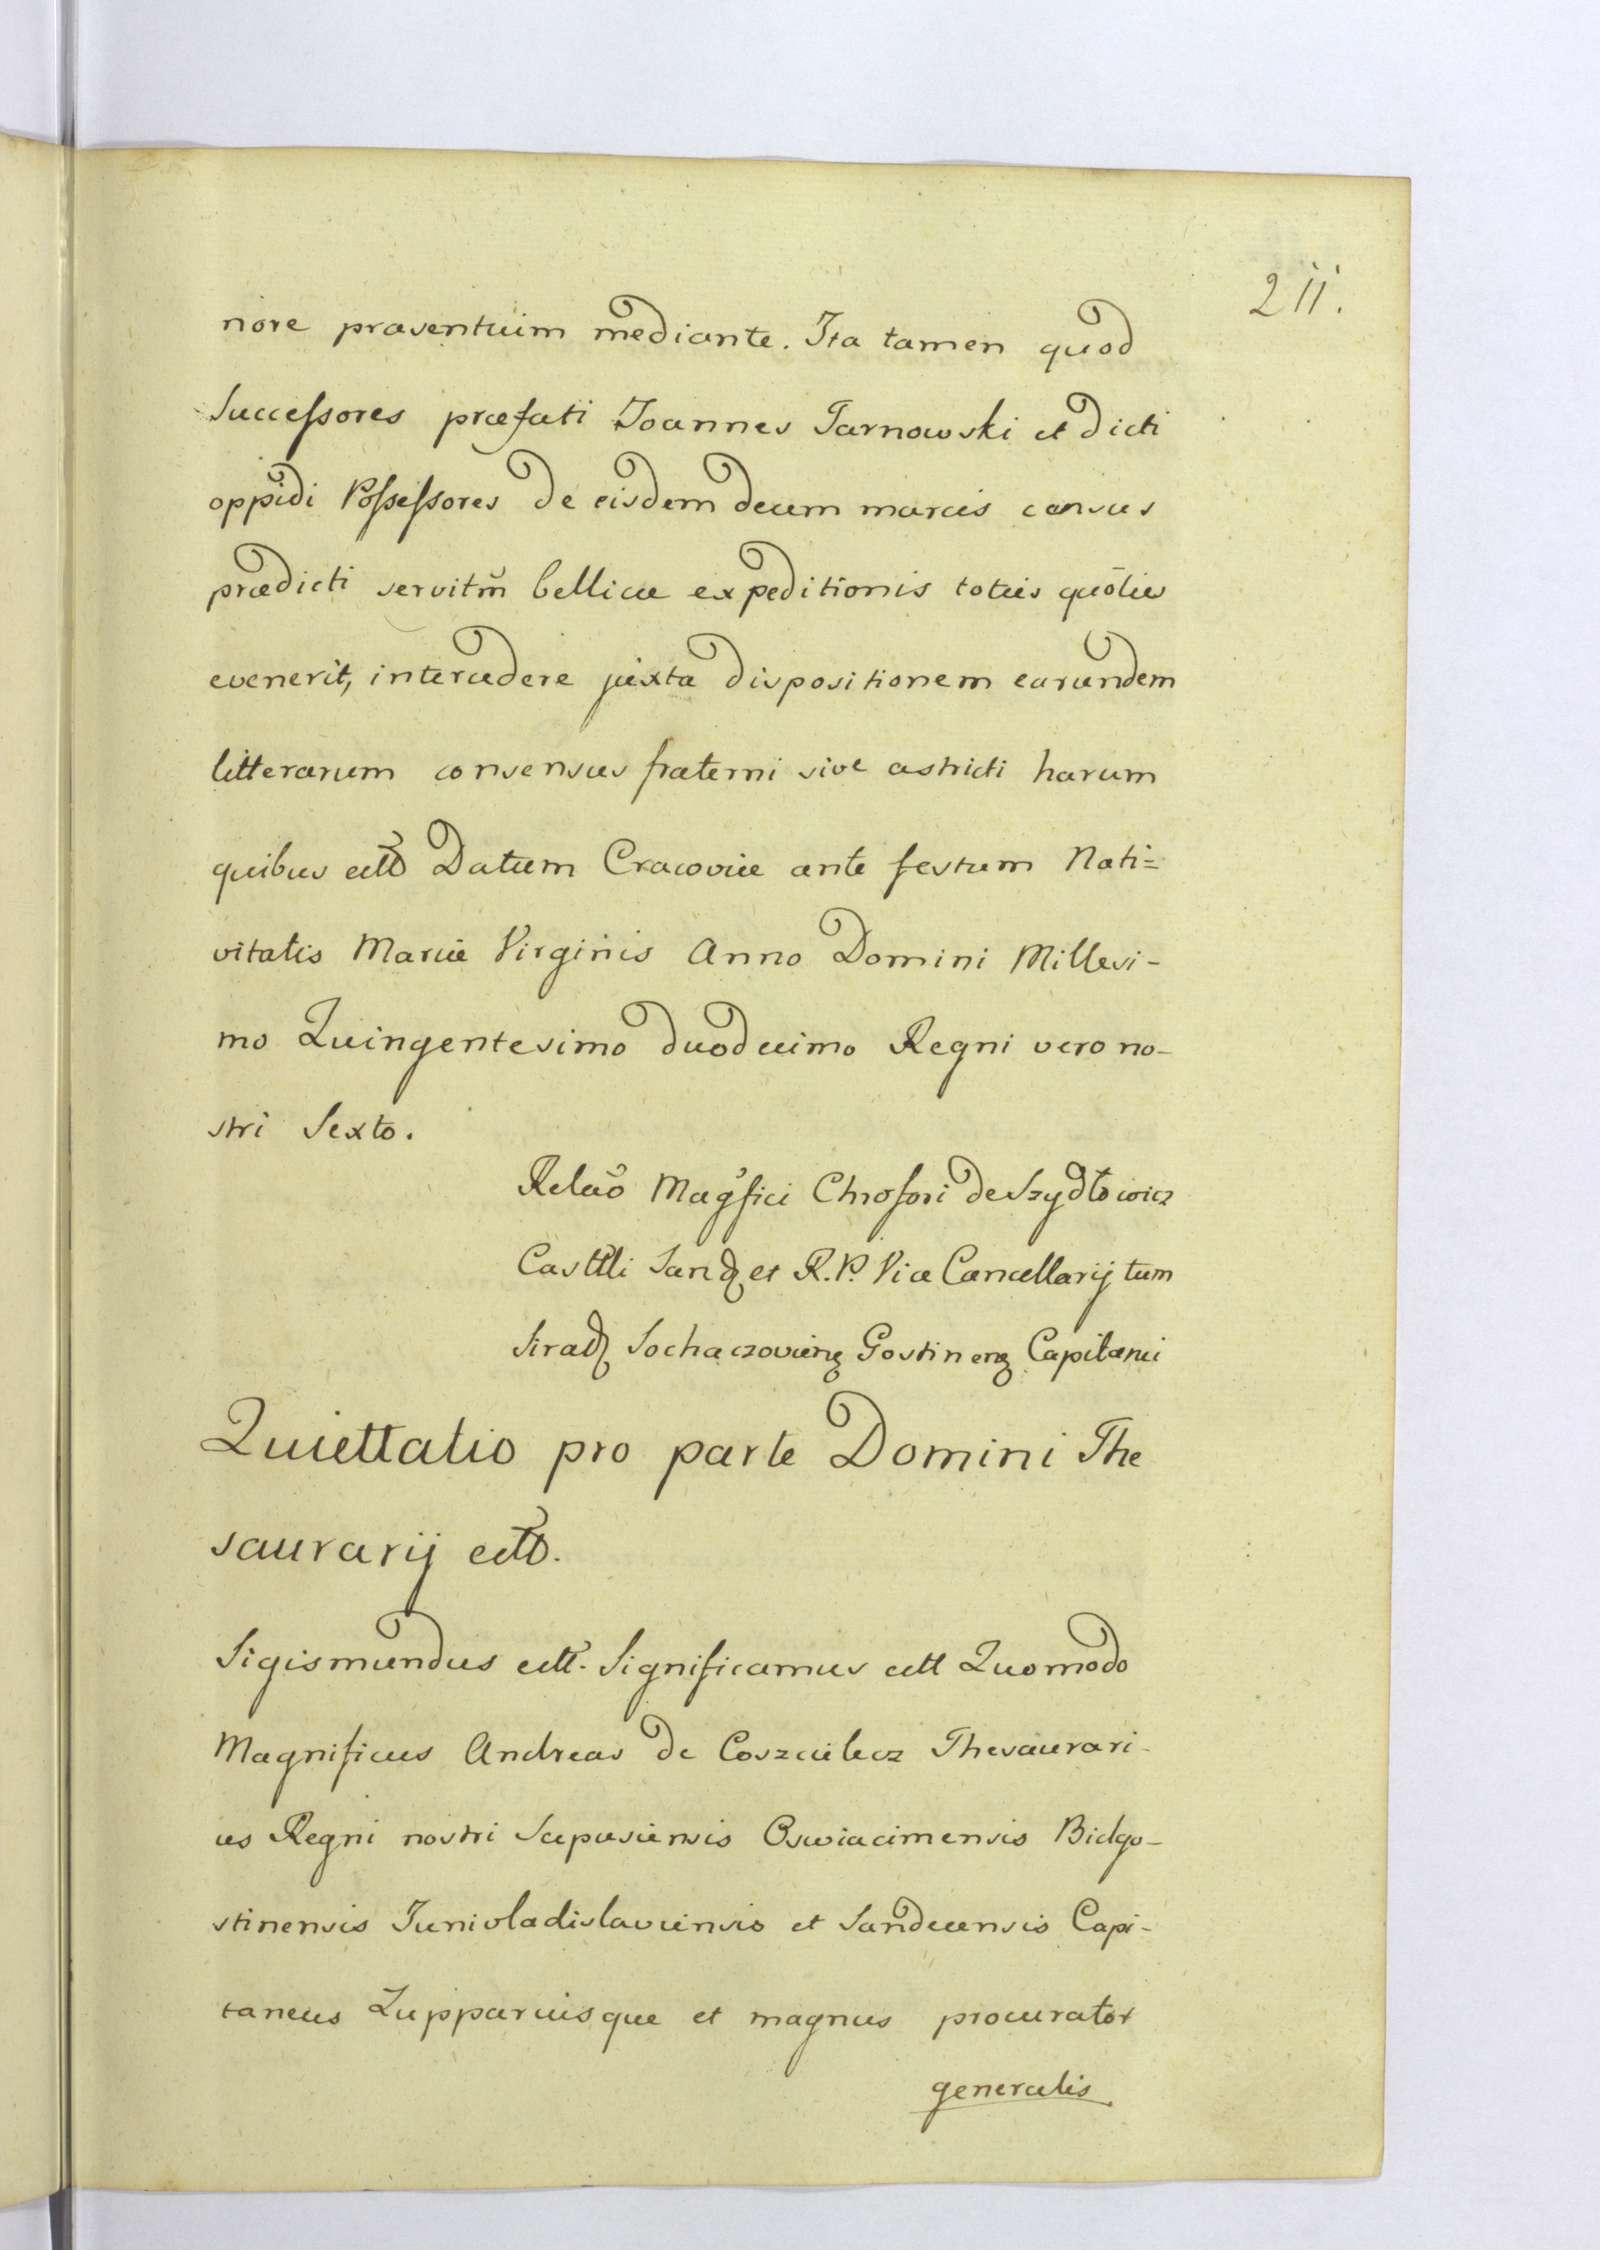 211.
nore praesentium mediante. Ita tamen quod
Successores praefati Joannes Tarnowski et dicti
oppidi Possessores de eisdem decem marcis census
praedicti servitm bellicae expeditionis toties quoties
evenerit, intercedere juxta dispositionem earundem
litterarum consensus fraterni sive astricti harum
quibus ectt Datum Cracoviae ante festum Nati=
vitatis Mariae Virginis Anno Domini Millesi-
mo Quingentesimo duodecimo Regni vero no-
stri Sexto.
Relao Magfici Chrofori de Szydłowicz
Casttli Sand et R. P. Vice Cancellarij tum
Sirad Sochaczovien Gostinen Capitanei
Quiettatio pro parte Domini The
saurarij ectt.
Sigismundus ectt. Significamus ectt Quomodo
Magnificus Andreas de Coszcielecz Thesaurari-
us Regni nostri Scepusiensis Oswiacimensis Bidgo-
stinensis Junivladislaviensis et Sandecensis Capi-
taneus Zuppariusque et magnus procurator
generalis